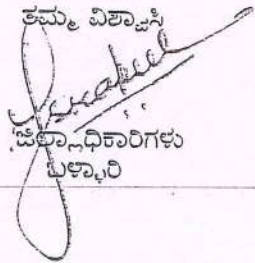 ತಮ್ಮ ವಿಶ್ವಾಸಿ
ಜಿಲ್ಲಾಧಿಕಾರಿಗಳು
ಬಳ್ಳಾರಿ